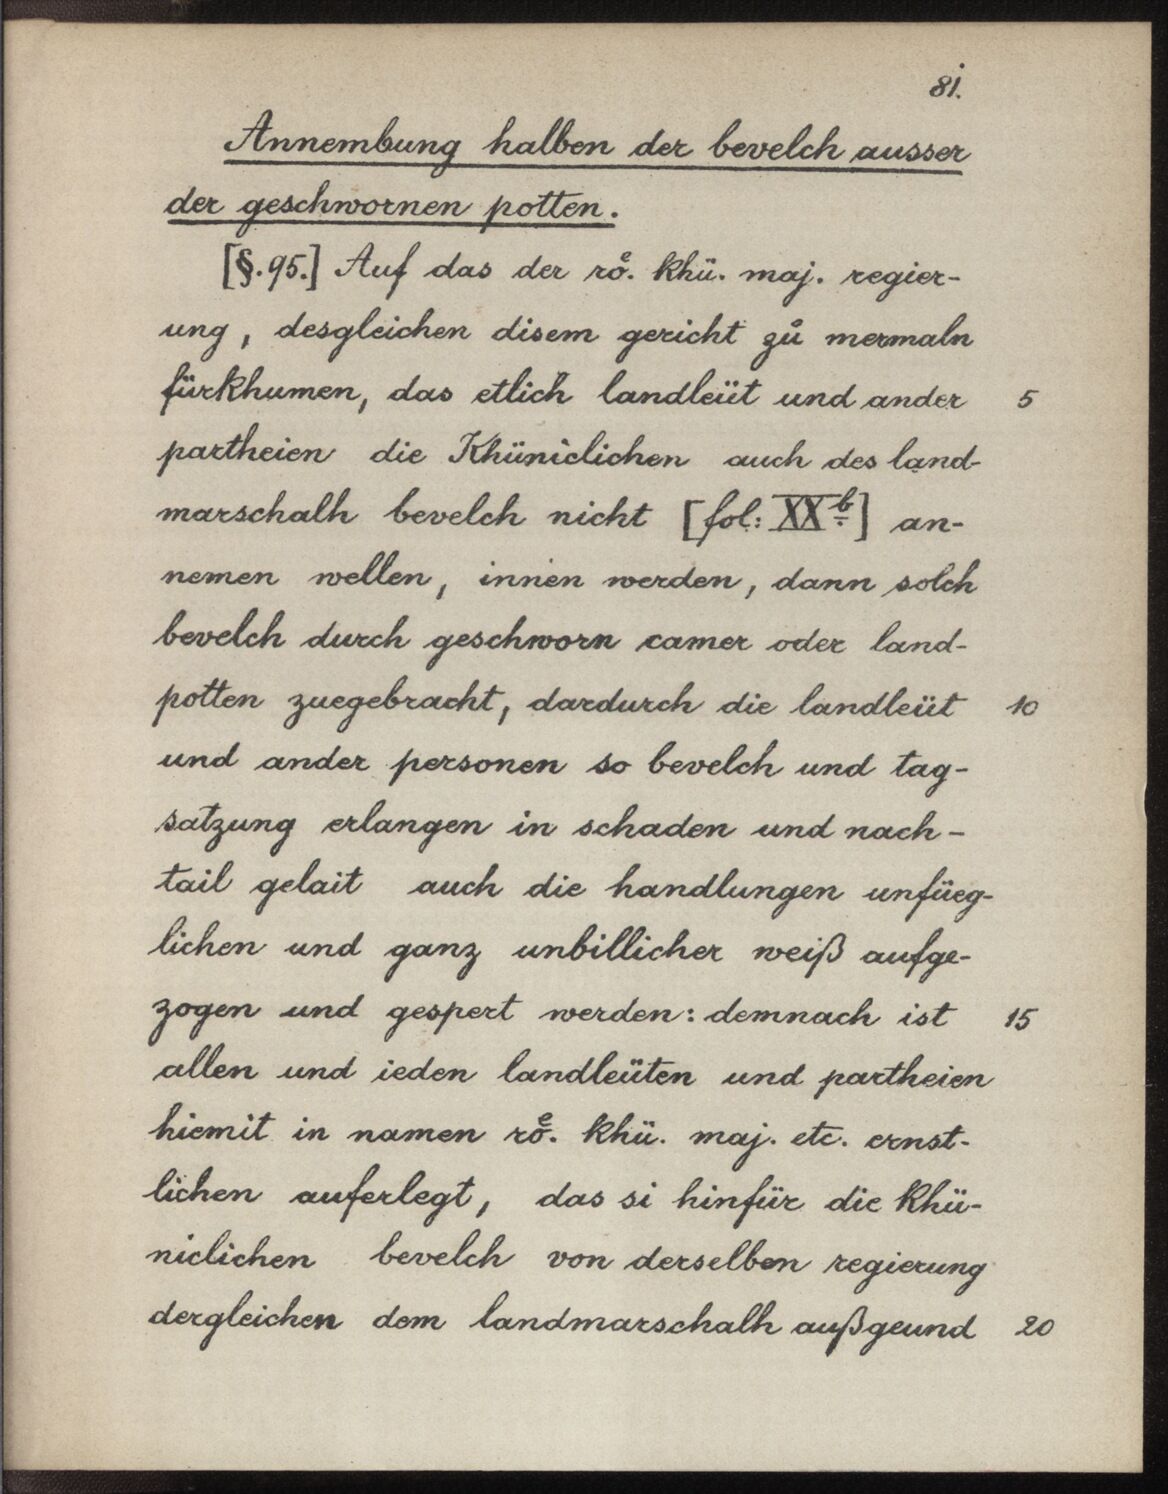 81.
Annembung halben der bevelch ausser
der geschwornen potten.
[§.95.] Auf das der roͤ. khü. maj. regier-
ung, desgleichen disem gericht zů mermaln
fürkhumen, das etlich landleüt und ander 5
partheien die Khüniclichen auch des land-
marschalh bevelch nicht [fol: XXᵇ] an-
nemen wellen, innen werden, dann solch
bevelch durch geschworn camer oder land-
potten zuegebracht, dardurch die landleüt 10
und ander personen so bevelch und tag-
satzung erlangen in schaden und nach-
tail gelait auch die handlungen unfüeg-
lichen und ganz unbillicher weiß aufge-
zogen und gespert werden: demnach ist 15
allen und ieden landleüten und partheien
hiemit in namen roͤ. khü. maj. etc. ernst-
lichen auferlegt, das si hinfür die khü-
niclichen bevelch von derselben regierung
dergleichen dem landmarschalh außgeund 20